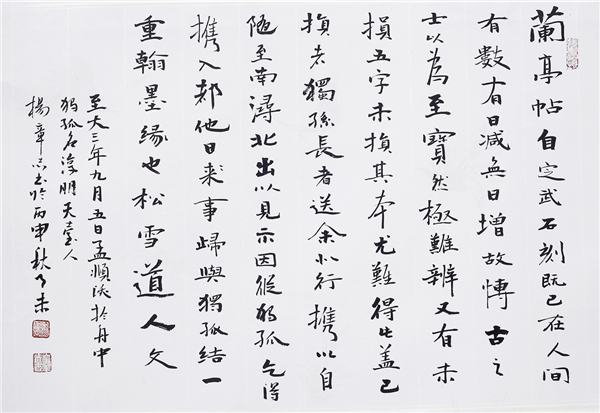 蘭亭帖自定武石刻既已在人間
有數有日減無日增故博古之
士以為至寶然極難辨又有未
損五字未損其本尤難得此盖已
損者獨孫長者送余小行攜以自
随至南潯北出以見示因從独孤乞得
攜入都他日来事歸與獨孤結一
重翰墨緣也松雪道人文
至大三年九月五日孟順跋於舟中
独孤名淳明天臺人
楊章志书於丙申秋月末